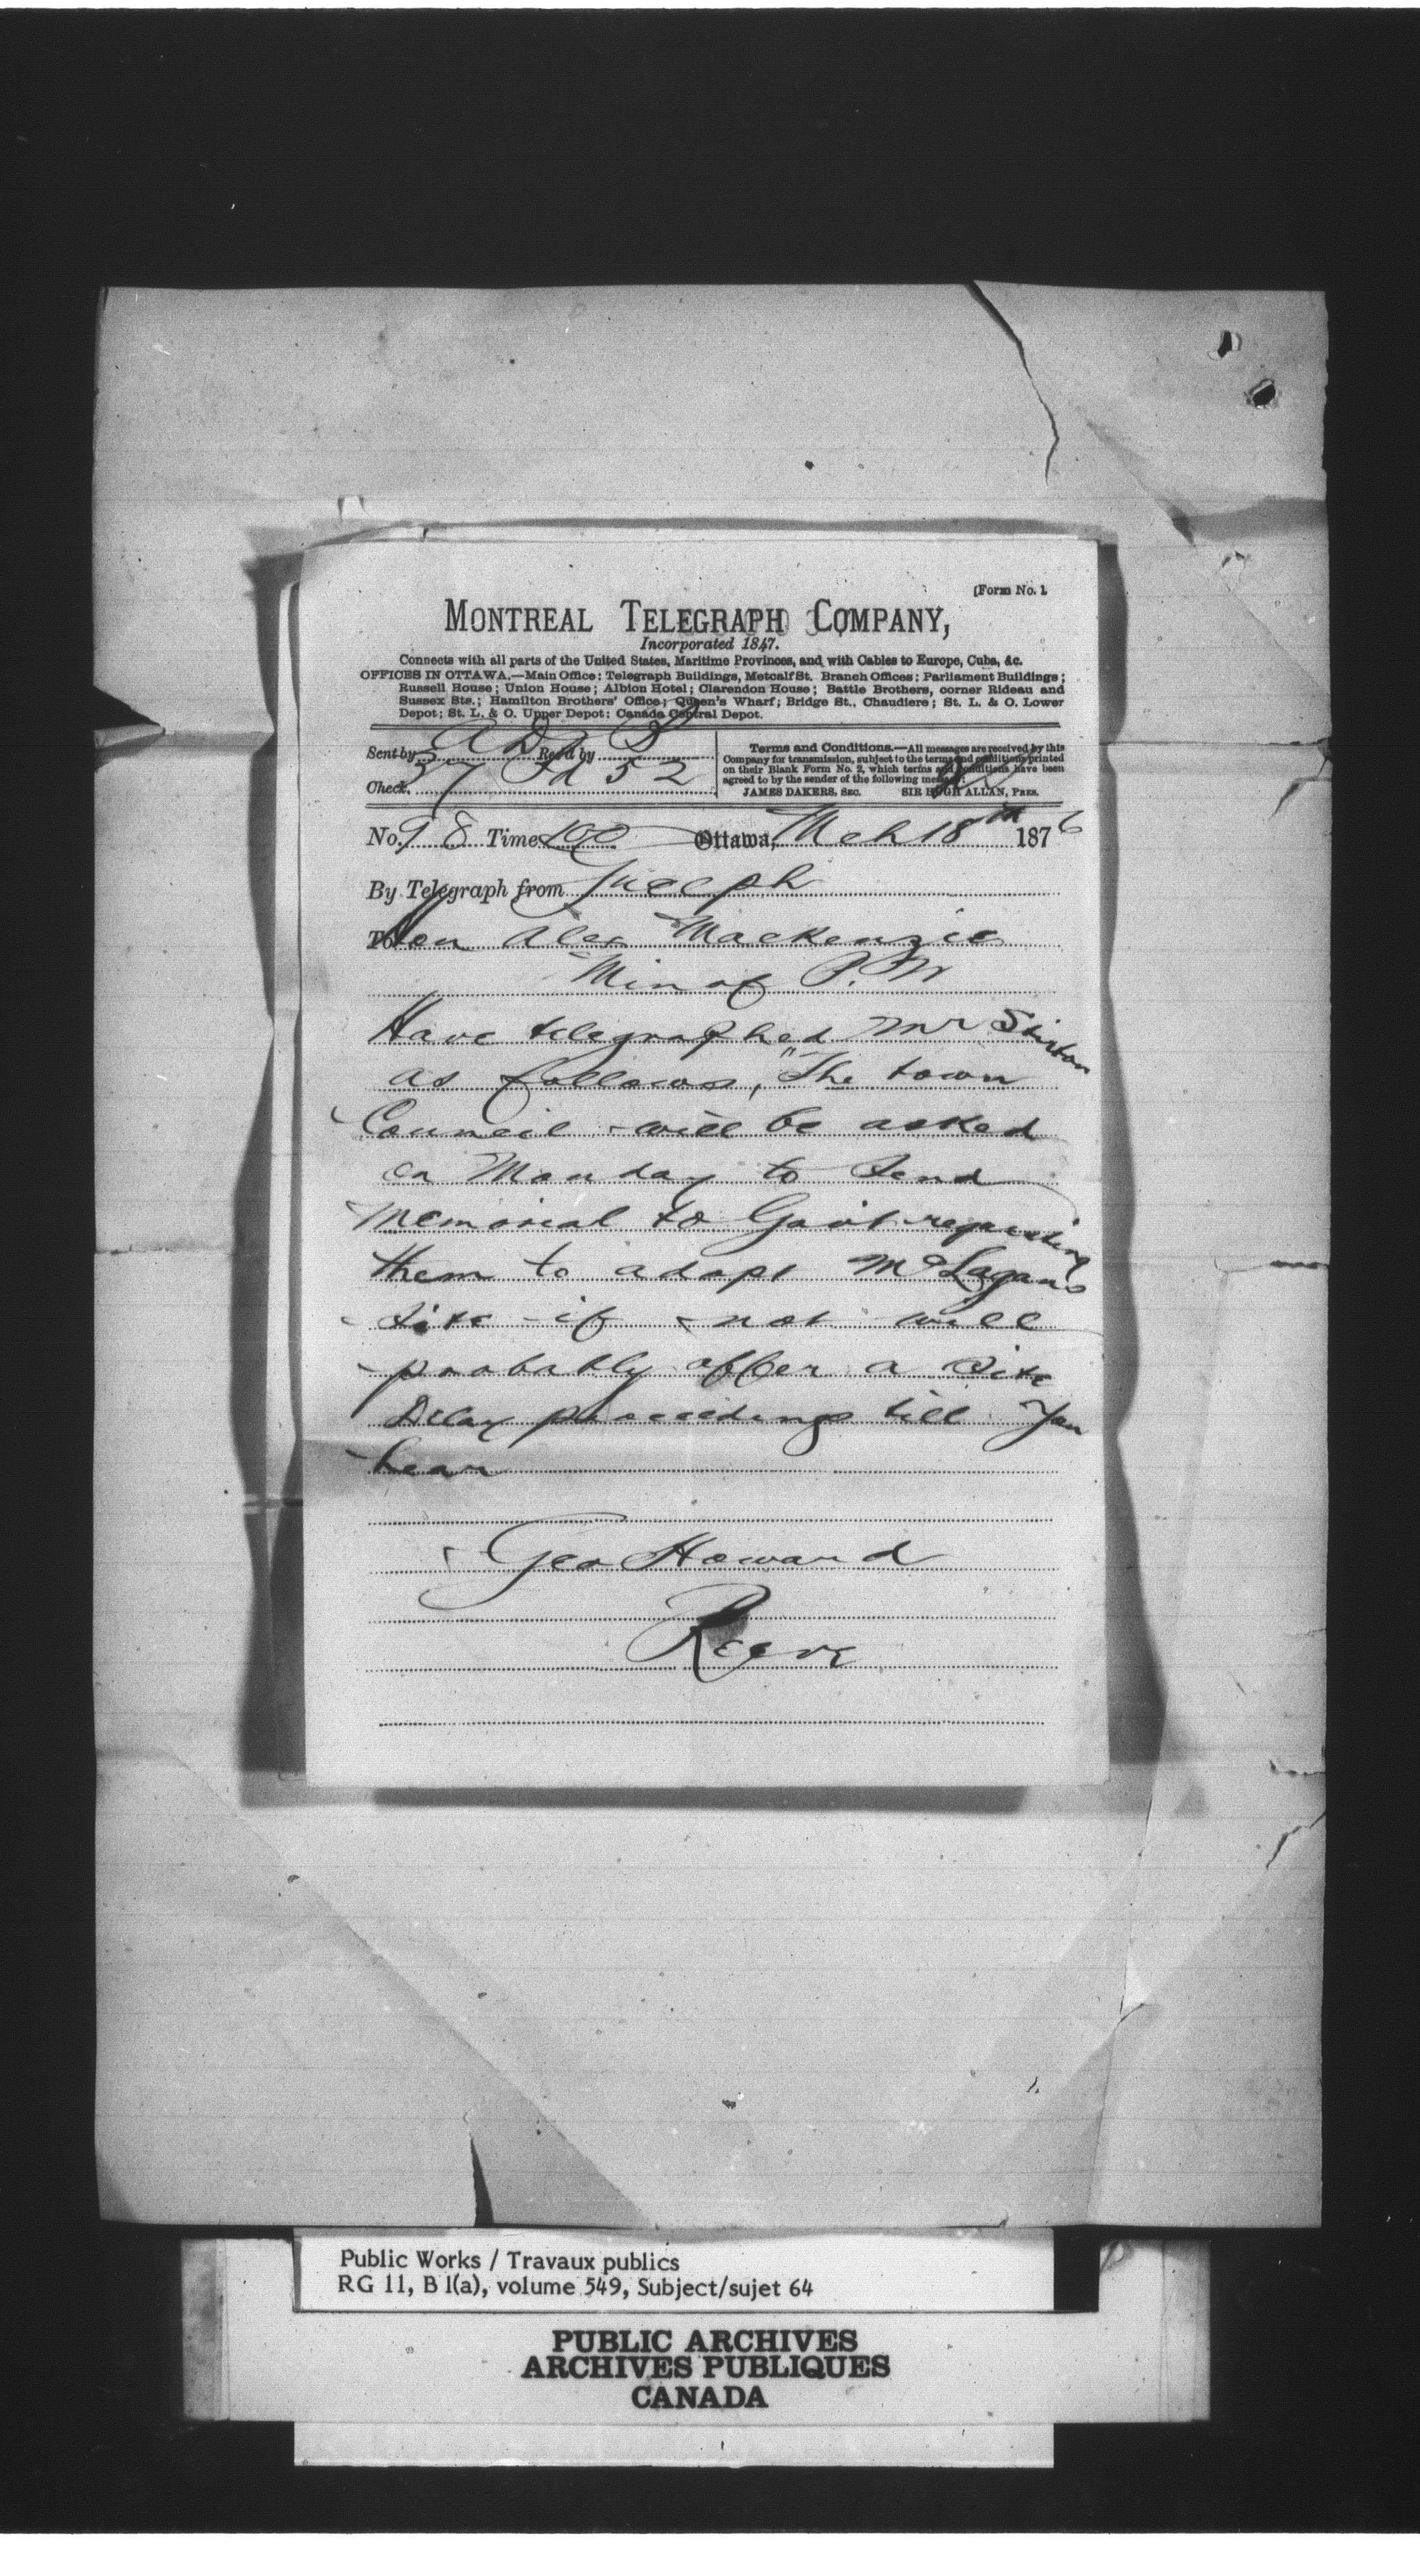 [Form No. 1.
MONTREAL TELEGRAPH COMPANY,
Incorporated 1847.
Connects with all parts of the United States, Maritime Provinces, and with Cables to Europe, Cuba, &c.
OFFICES IN OTTAWA.—Main Office: Telegraph Buildings, Metcalf St. Branch Offices: Parliament Buildings;
Russell House; Union House; Albion Hotel; Clarendon House; Battle Brothers, corner Rideau and
Sussex Sts.; Hamilton Brothers' Office; Queen's Wharf; Bridge St., Chaudiere; St. L. & O. Lower
Depot; St. L. & O. Upper Depot; Canada Central Depot.
Sent by Rec'd by B
Check. 37 Pd 52
Terms and Conditions.—All messages are received by this
Company for transmission, subject to the terms and conditions printed
on their Blank Form No. 2, which terms and conditions have been
agreed to by the sender of the following message:
JAMES DAKERS, SEC. SIR HUGH ALLAN, PRES.
No. 98 Time 100 Ottawa, Mch 18th 1876
By Telegraph from Guelph
To Hon Alex Mackenzie
Min of P. W
Have telegraphed Mr Stirton
as follows, "The town
Council will be asked
on Monday to Send
Memorial to Gov't requesting
them to adopt McLagans
Site if not will
probably offer a Site
Delay proceedings till you
hear
Geo Howard
Reeve
Public Works / Travaux publics
RG 11, B 1(a), volume 549, Subject/sujet 64
PUBLIC ARCHIVES
ARCHIVES PUBLIQUES
CANADA